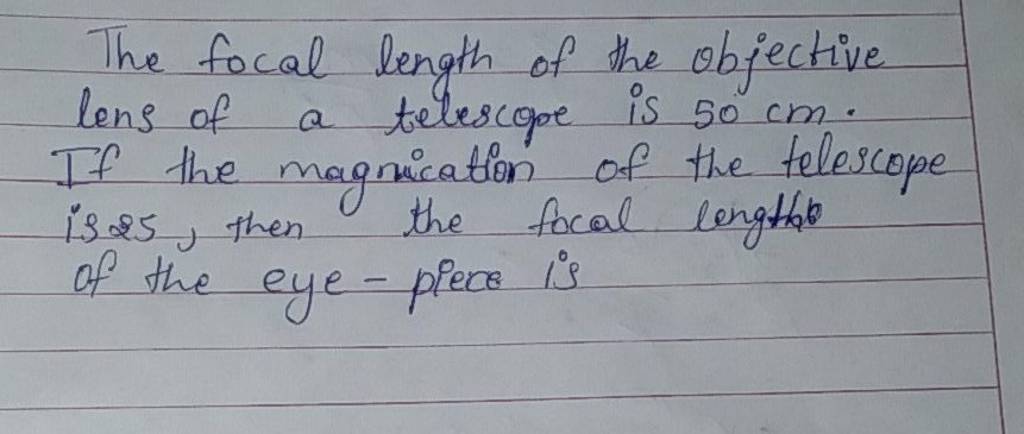 The focal length of the objective
lens of a telescope is 50 cm.
If the magnication of the telescope
is 25, then the focal length
of the eye - piece is